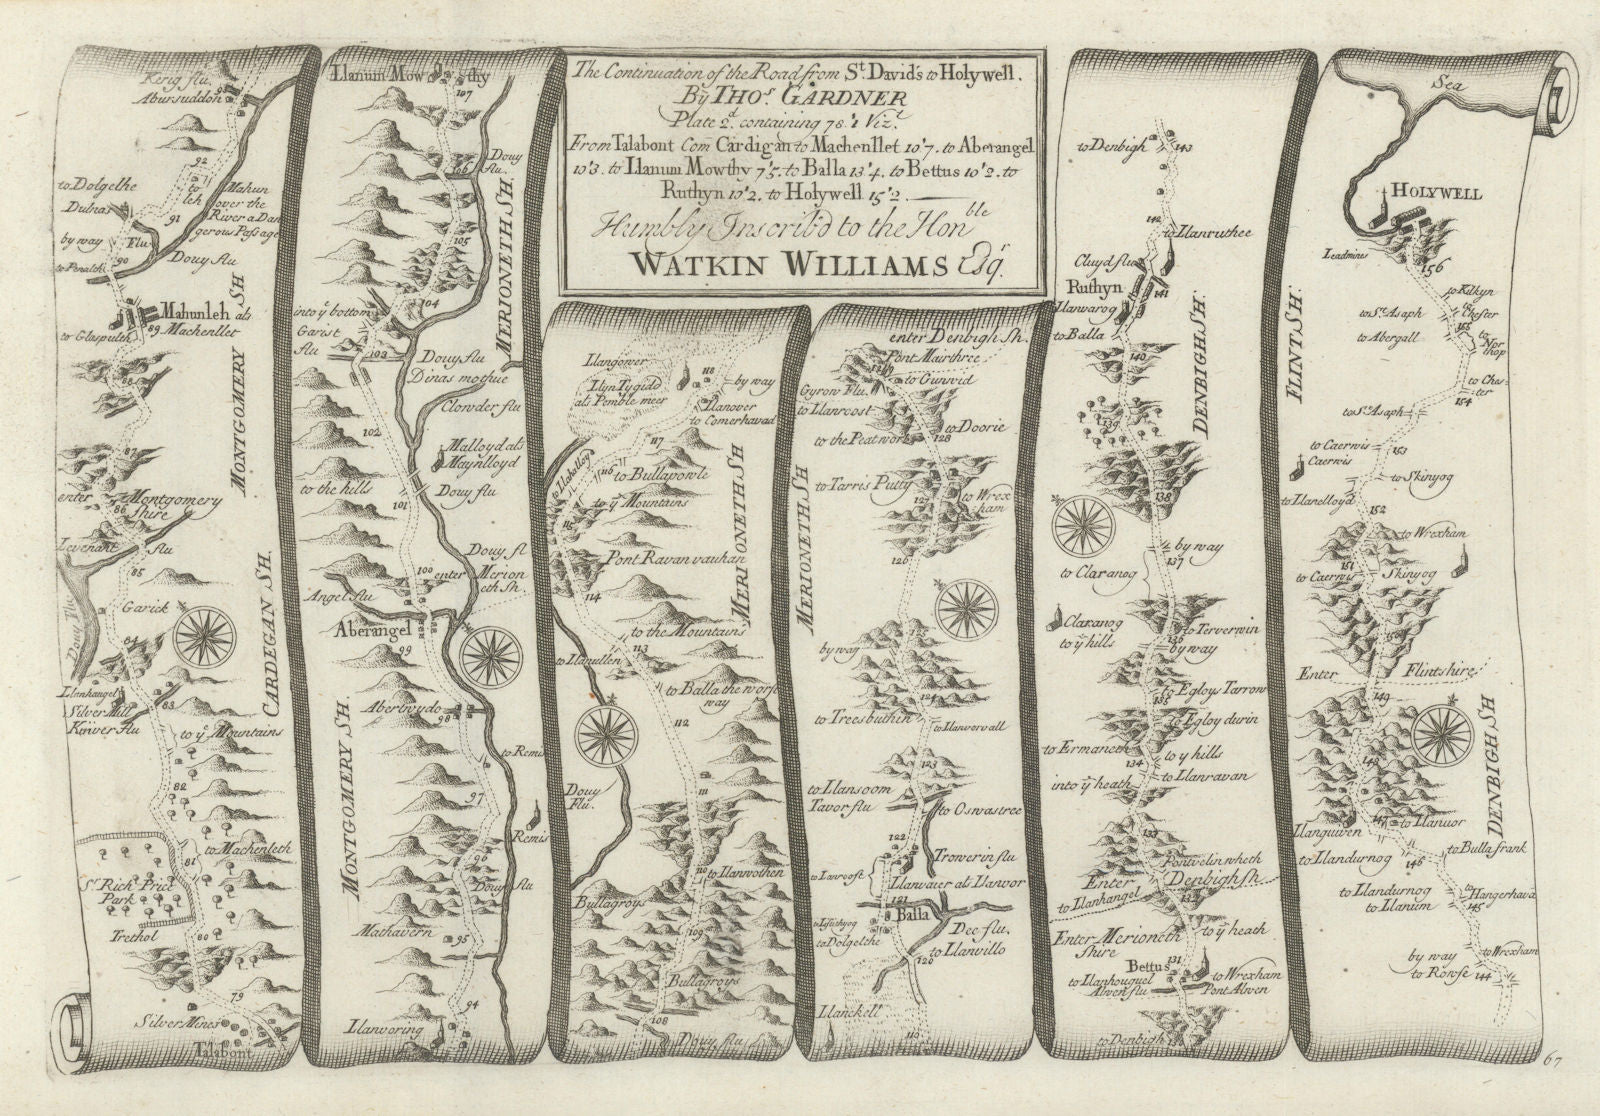 The Continuation of the Road from St. David's to Holywell.
By THOs. GARDNER
Plate 2d. containing 78'1 Vizt.
From Talabont Com Cardigan to Machenllet 10'7. to Aberangel
10'3. to Llanum Mowthy 7'5. to Balla 13'4. to Bettus 10'2. to
Ruthyn 10'2. to Holywell 15'2.
Humbly Inscrib'd to the Honble
WATKIN WILLIAMS Esqr.
Kerig flu
Abursuddon
92
to Dolgelhe
to
leh
Mahun
over the
River a Dan
gerous Passage
Dulnas
91
by way
Flu
90
Douy flu
to Penalth
Mahunleh als
Machenllet
89
to Glaspulth
MONTGOMERY SH
88
87
enter Montgomery
shire
86
Levenant flu
85
Garick
Douy flu
84
CARDEGAN SH.
Llanhangel
Silver Mill
Kinver flu
83
to ye Mountains
82
to Machenleth
81
Sr. Rich Price
Park
Trethol
80
79
Silver Mines
Talabont
Llanum Mowthy
107
Douy
flu.
106
MERIONETH SH.
105
104
into ye bottom
Garist
flu
103
Douy flu
Dinas mothue
Clowder flu
102
Malloyd als
Maynlloyd
to the hills
Douy flu
101
Douy fl
100
enter Merion
eth Sh.
Angel flu
Aberangel
99
MONTGOMERY SH.
Abertwydo
98
to Remis
97
Remis
96
Douy flu
Mathavern
95
94
Llanvoring
Llangower
118
Llyn Tygidd
als Pemble meer
by way
Llanover
to Comerhavad
117
to Llahelley
116
to Bullapowle
to ye Mountains
115
MERIONETH SH
Pont Ravan vauhan
114
to the Mountains
113
to Llanullen
to Balla the worse
way
112
Douy
Flu.
111
110
to Llanwothen
Bullagroys
109
Bullagroys
108
Douy flu
enter Denbigh Sh.
Pont Mairthree
129
to Gunvid
Gyrow Flu
to Llanroost
to Doorie
128
to the Peatwork
MERIONETH SH
to Tarris Putty
127
to Wrex
ham
126
125
by way
124
to Treesbuthin
to Llanworvall
123
to Llansoom
Tavor flu
to Oswastree
122
Trowerin flu
to Lanroost
Llanvaier als Llanvor
121
Balla
Dee flu.
to Dolgelthe
to Llanvillo
120
Llanckell
119
to Denbigh
143
142
to Llanruthee
Cluyd flu
Ruthyn
141
Llanwarog
to Balla
140
DENBIGH SH.
139
138
by way
137
to Claranog
Claranog
to ye hills
to Terverwin
136
by way
to Egloys Tarrow
135
to Egloy durin
to Ermaneth
134
to ye hills
into ye heath
to Llanravan
133
Pontvelin wheth
Enter Denbigh sh
to Llanhangel
132
Enter Merioneth
Shire
to ye heath
131
Bettus
to Llanhouquel
Alwen flu
to Wrexham
Pont Alwen
to Denbigh
Sea
HOLYWELL
Leadmines
156
to Kilkyn
to
Chester
to St. Asaph
155
to Abergall
to
Nor
thop
FLINT SH.
to Ches-
ter
154
to St. Asaph
to Caerwis
Caerwis
153
to Skinyog
to Llanelloyd
152
to Wrexham
151
to Caerwis
Skinyog
150
Enter Flintshire
149
DENBIGH SH
148
Llanguiven
147
to Llanuor
to Llandurnog
146
to Bulla frank
to Llandurnog
to Llanum
to
Hangerhava
145
by way
to Rowse
to Wrexham
144
67